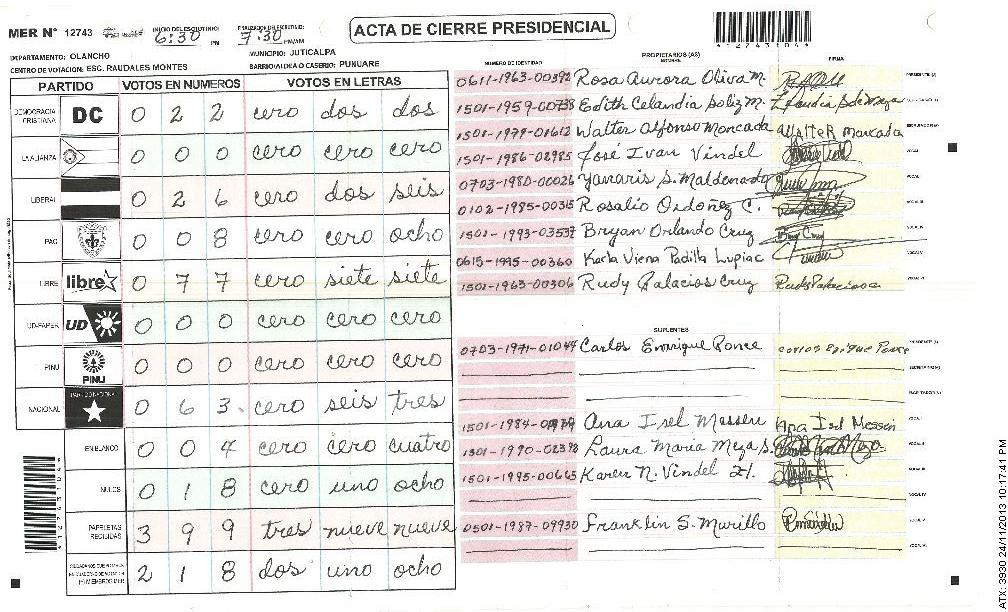 ACTA DE CIERRE PRESIDENCIAL
MER N° 12743
INICIO DEL ESCRUTINIO: 6:30 PM
FINALIZACION DE ESCRUTINIO: 7:30 PM/AM
DEPARTAMENTO: OLANCHO
MUNICIPIO: JUTICALPA
CENTRO DE VOTACION: ESC. RAUDALES MONTES
BARRIO/ALDEA O CASERIO: PUNUARE
PARTIDO VOTOS EN NUMEROS VOTOS EN LETRAS
DEMOCRACIA CRISTIANA DC 0 2 2 cero dos dos
LA ALIANZA 0 0 0 cero cero cero
LIBERAL 0 2 6 cero dos seis
PAC 0 0 8 cero cero ocho
LIBRE libre 0 7 7 cero siete siete
UD-FAPER UD 0 0 0 cero cero cero
PINU PINU 0 0 0 cero cero cero
NACIONAL PARTIDO NACIONAL 0 6 3 cero seis tres
EN BLANCO 0 0 4 cero cero cuatro
NULOS 0 1 8 cero uno ocho
PAPELETAS RECIBIDAS 3 9 9 tres nueve nueve
(+) MIEMBROS MER 2 1 8 dos uno ocho
PROPIETARIOS (AS)
NUMERO DE IDENTIDAD NOMBRE FIRMA
0611-1963-00392 Rosa Aurora Oliva M. PRESIDENTE (A)
1501-1959-00738 Edith Celandia Soliz M.
1501-1979-01612 Walter Alfonso Moncada Walter Moncada
1501-1986-02985 José Ivan Vindel VOCAL I
0703-1980-00026 Yanaris S. Maldonado VOCAL II
0102-1985-00315 Rosalio Ordoñez C. VOCAL III
1501-1993-03537 Bryan Orlando Cruz VOCAL IV
0615-1995-00360 Karla Viena Padilla Lupiac VOCAL V
1501-1963-00306 Rudy Palacios Cruz Rudy Palacios c VOCAL VI
SUPLENTES
0703-1971-01044 Carlos Enrrique Ponce PRESIDENTE (A)
SECRETARIO (A)
ESCRUTADOR (A)
1501-1984- Ana Isel Messen Ana Isel Messen VOCAL I
1501-1990-02398 Laura Maria Meza S. VOCAL II
1501-1995-00665 Karen N. Vindel H. VOCAL III
VOCAL IV
0501-1987-09930 Franklin S. Murillo VOCAL V
VOCAL VI
ATX: 3930 24/11/2013 10:17:41 PM